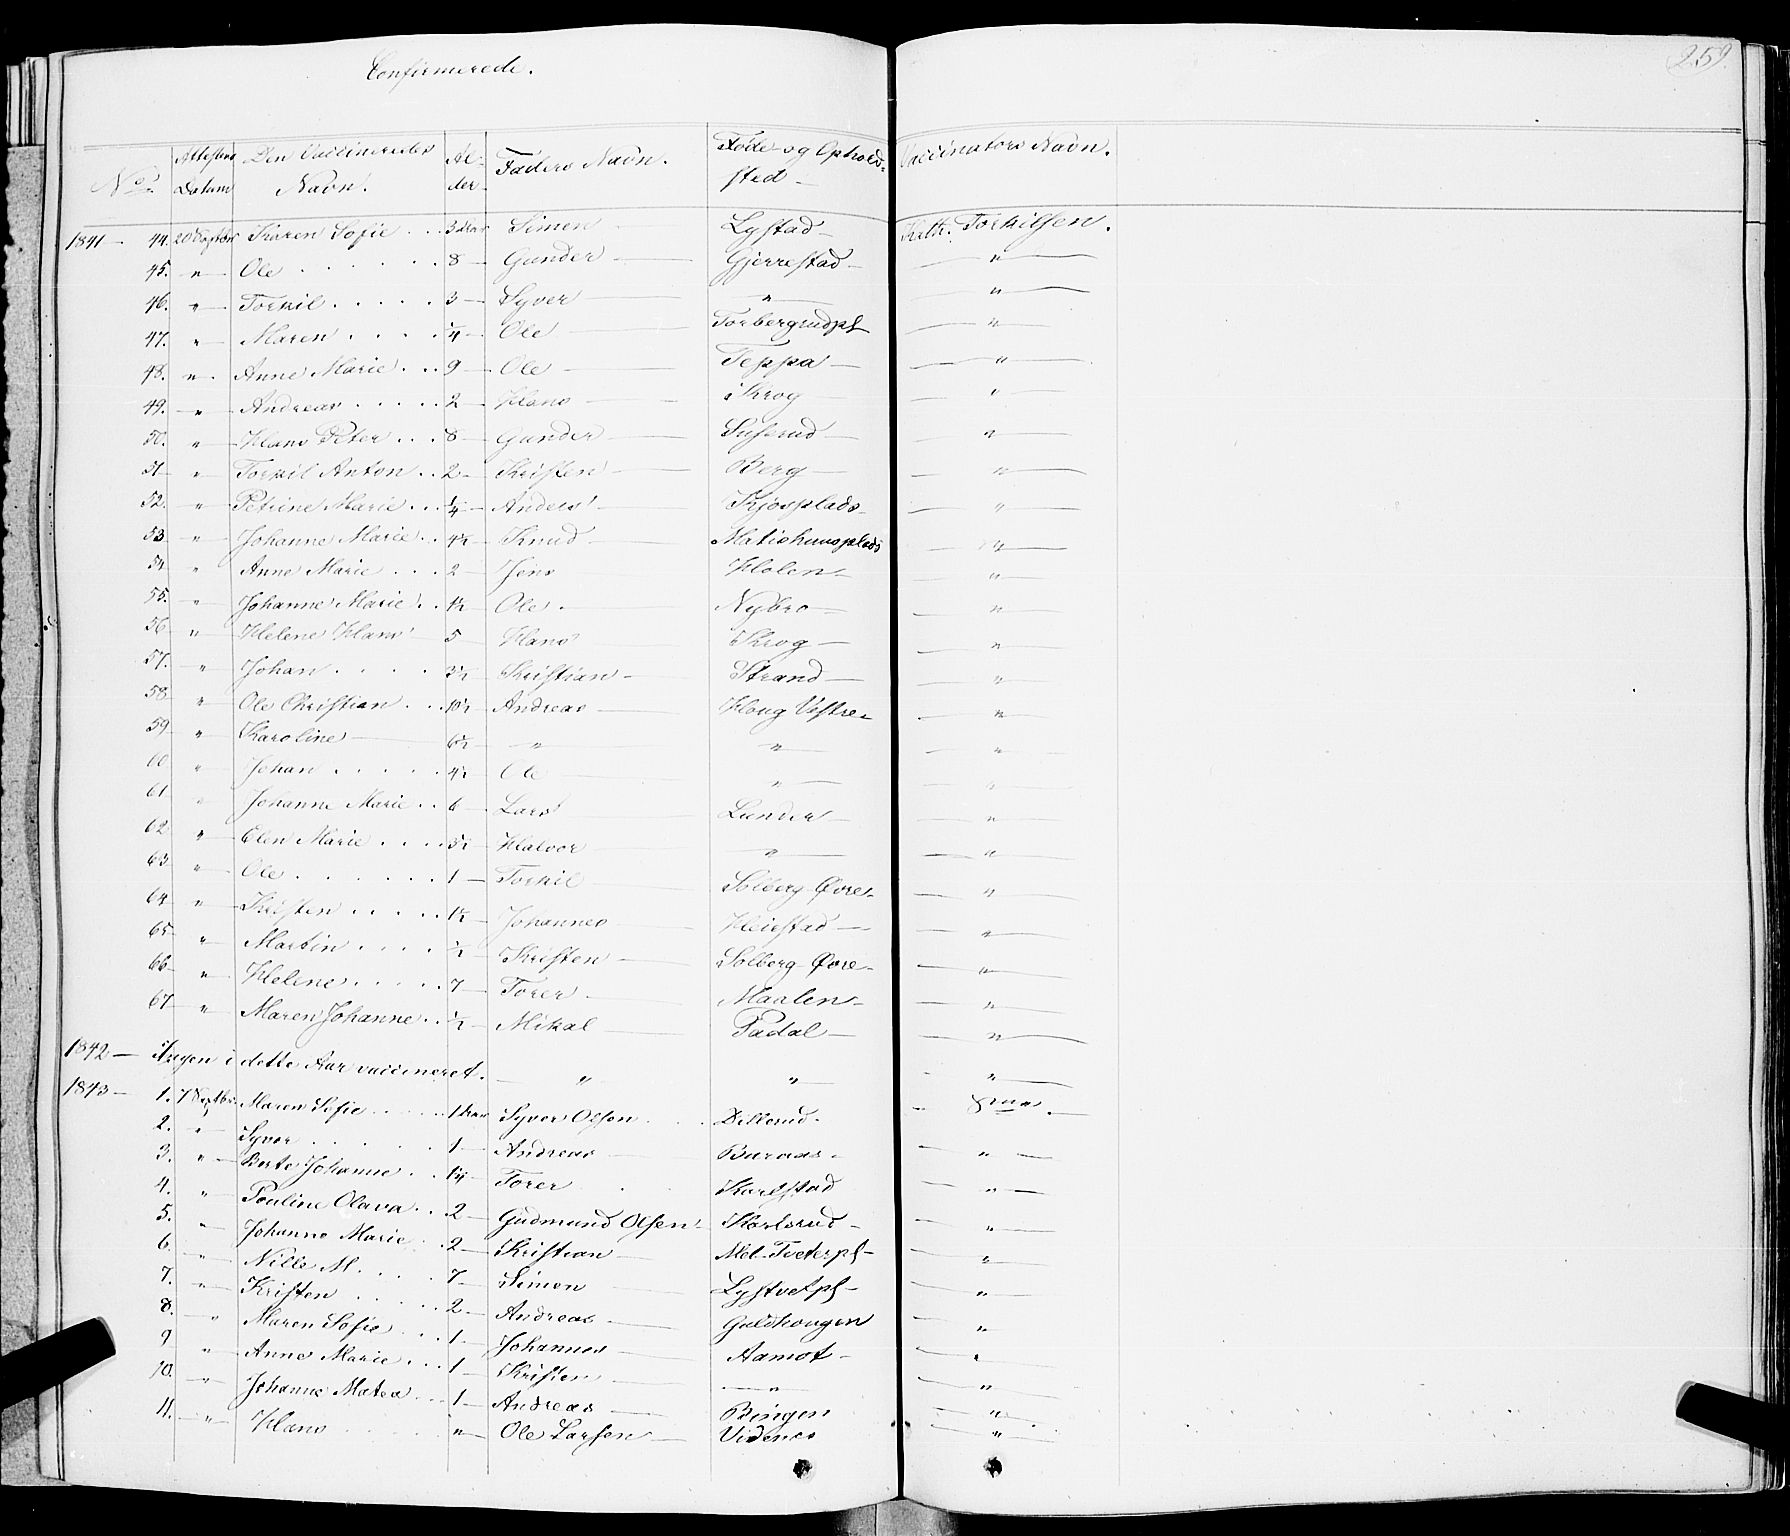 Confirmerede.
259.
No. Attestens Datum Den Vaccineredes Navn. Alder Faders Navn. Føde- og Opholdssted Vaccinators Navn.
1841 — 44. 20 Septbr Karen Sofie . . 3 Aar Simen Lystad — Kath. Torkilsen.
45. " Ole . . . . 8 — Gunder — Gjerrestad — "
46. " Torkil . . . . 3 — Syver " "
47. " Maren . . . . 1/4 — Ole Torbergrudpl "
48. " Anne Marie . . 9 — Ole — Teppa — "
49. " Andreas . . . . 2 — Hans Krog "
50. " Hans Peter . . 8 — Gunder — Suserud — "
51 — " Torkil Anton . . 2 — Kristen — Berg — "
52. " Petrine Marie . . 1/4 — Anders — Kjosplads — "
53. " Johanne Marie . . 4 1/2 — Knud — Matishausplads "
54. " Anne Marie . . . 2 — Jens Holen — "
55. " Johanne Marie . . 1 1/2 — Ole — Nybro — "
56 " Helene Hans 5 Hans Krog — "
57. " Johan . . . . 3 1/2 — Kristian — Strand — "
58 " Ole Christian . . 10 1/2 — Andreas — Houg Vestre — "
59 " Karoline — 6 1/2 — " " "
60 " Johan . . . . 4 1/2 — Ole " "
61 " Johanne Marie . . 6 — Lars Lunder — "
62 " Elen Marie . . . 3 1/2 — Halvor " "
63 " Ole . . . . 1 — Torkil Solberg Øvre — "
64 " Kristen . . . . 1 1/2 — Johannes — Heiestad — "
65 — " Martin . . . . 1/2 — Kristen — Solberg Øvre — "
66 — " Helene . . . . 7 — Torer — Maalen — "
67 — " Maren Johanne . . 1/2 — Mikal — Padal — "
1842 — Ingen i dette Aar vaccineret. " " "
1843 — 1. 7 Septbr. Maren Sofie . . . 1 Aar Syver Olsen . . Dillerud. —
2. " Syver . . . . 1 — Andreas — Buraas — "
3. " Berte Johanne . . 1 1/4 — Torer Karlstad "
4. " Pouline Olava . . 2 — Gudmund Olsen — Karlsrud — "
5. " Johanne Marie . . 2 — Kristian — Mel. Tveterpl — "
6. " Nille M. . . . 7 — Simen Lystvetpl — "
7. " Kristen . . . . 2 — Andreas — Guldhougen "
8. " Maren Sofie . . . 1 — Johannes — Aamot — "
9 " Anne Marie . . . 1 — Kristen — " "
10. " Johanne Matea . . 1 — Andreas — Bingen "
11. " Hans . . . . " Ole Larsen — Videnes "